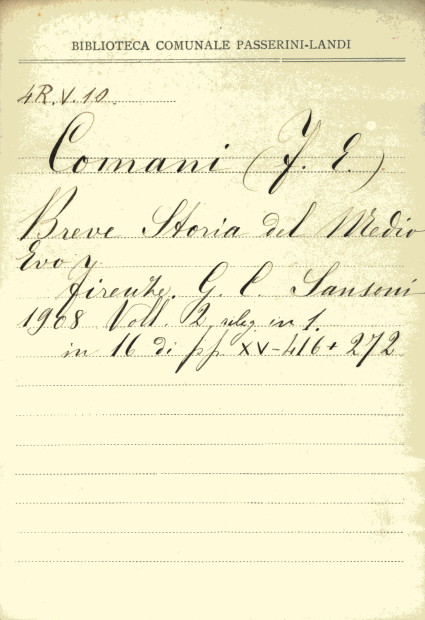 BIBLIOTECA COMUNALE PASSERINI-LANDI
4R.V.10.
Comani (F. E.)
Breve Storia del Medio
Evo
Firenze, G. C. Sansoni
1908 Voll. 2, releg. in 1.
in 16 di pp. XV-416+272